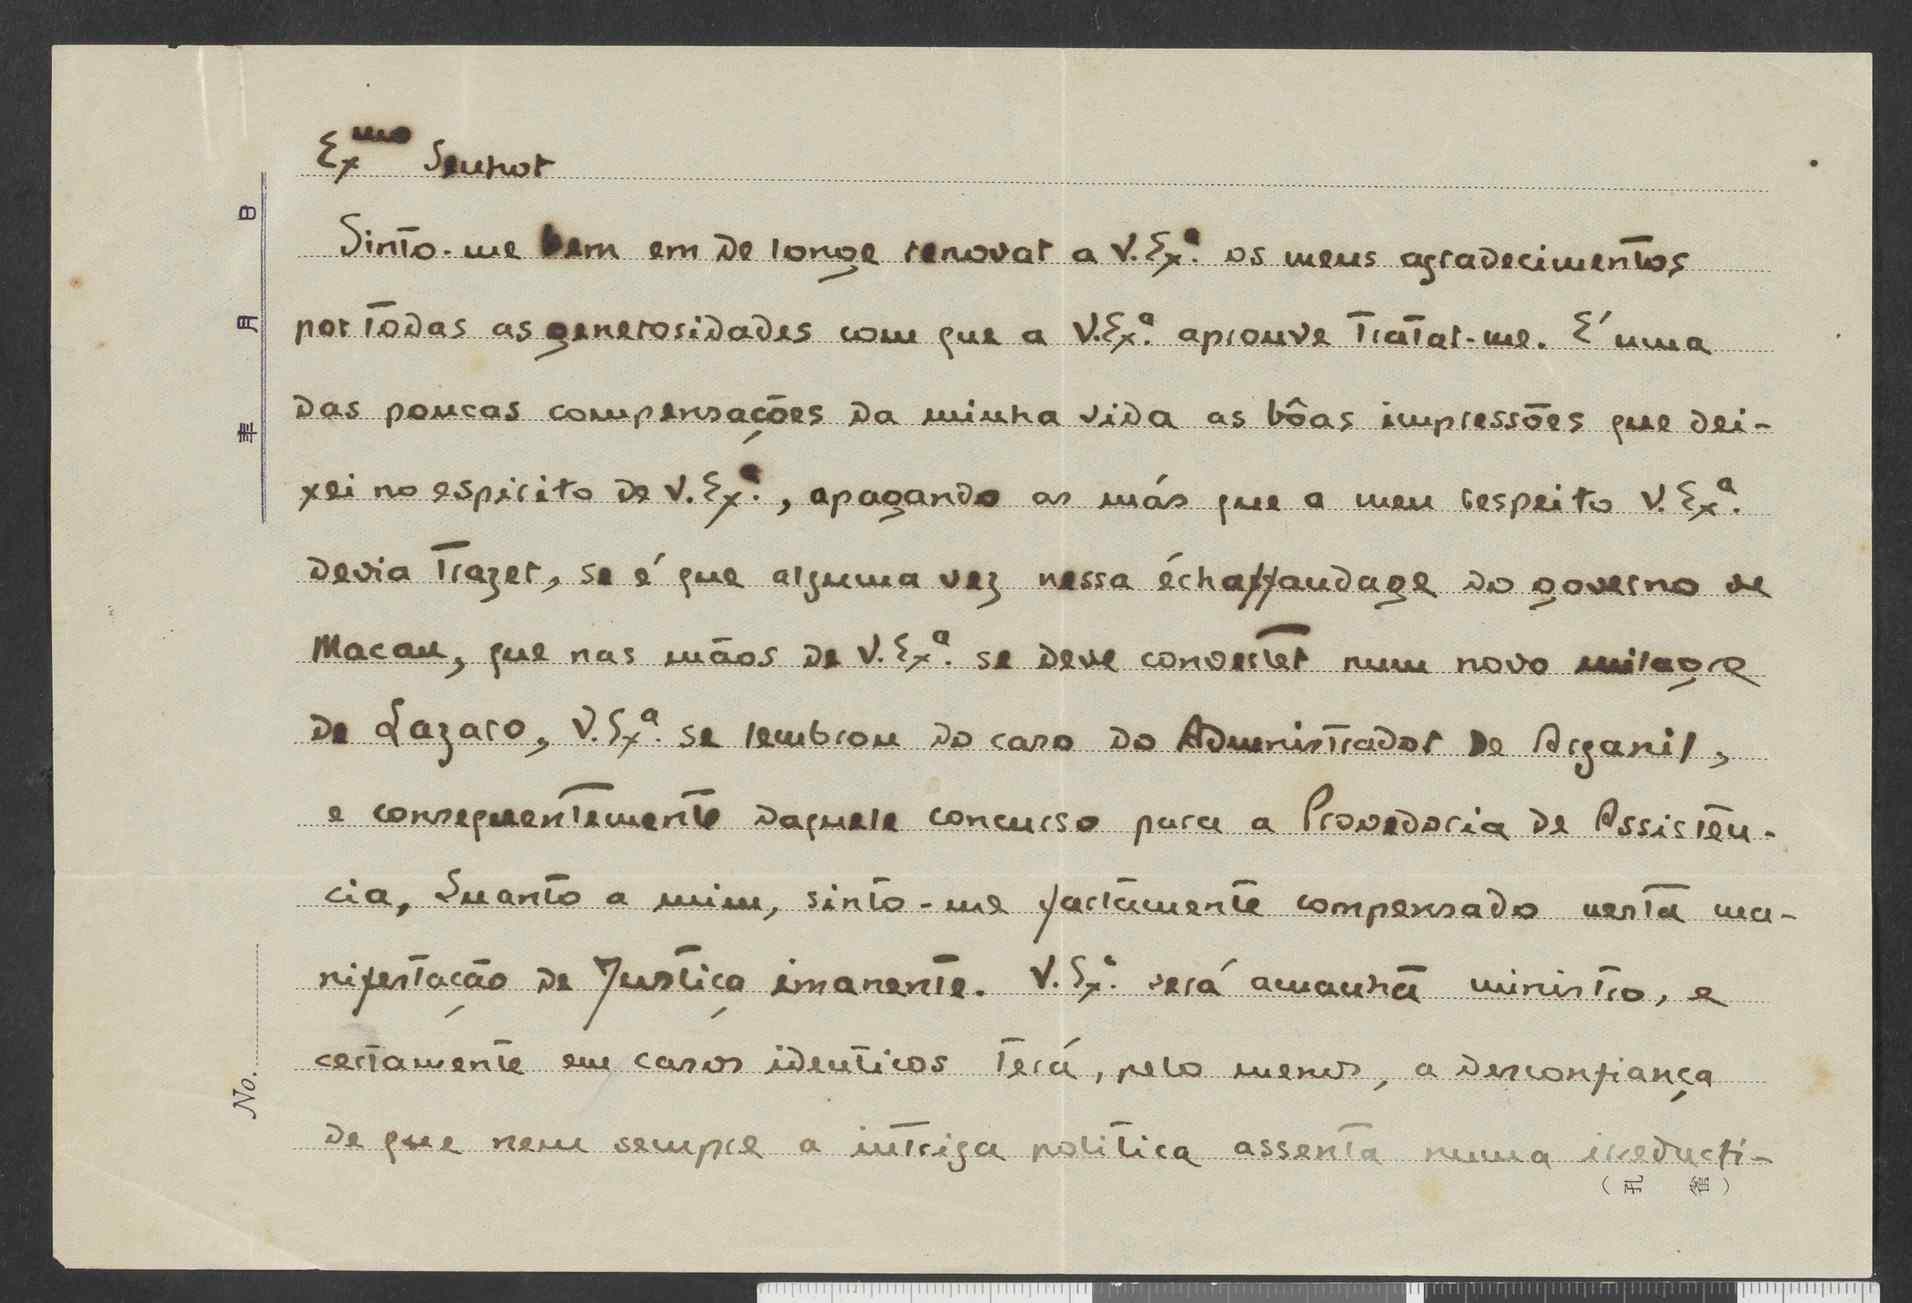 Exmo Senhor
Sinto-me bem em de longe renovar a V. Exª. os meus agradecimentos
por tôdas as generosidades com que a V. Exª. aprouve tratar-me. E' uma
das poucas compensações da minha vida as bôas impressões que dei-
xei no espirito de V. Exª., apagando as más que a meu respeito V. Exª.
devia trazer, se é que alguma vez nessa échaffaudage do governo de
Macau, que nas mãos de V. Exª. se deve converter num novo milagre
de Lazaro, V. Exª. se lembrou do caso do Administrador de Arganil,
e consequentemente daquele concurso para a Provedoria de Assistên-
cia, Quanto a mim, sinto-me fartamente compensado nesta ma-
nifestação de Justiça imanente. V. Exª. será amanhã ministro, e
certamente em casos identicos terá, pelo menos, a desconfiança
de que nem sempre a intriga politica assenta numa irreducti-
日
月
年
No.
(孔 雀)